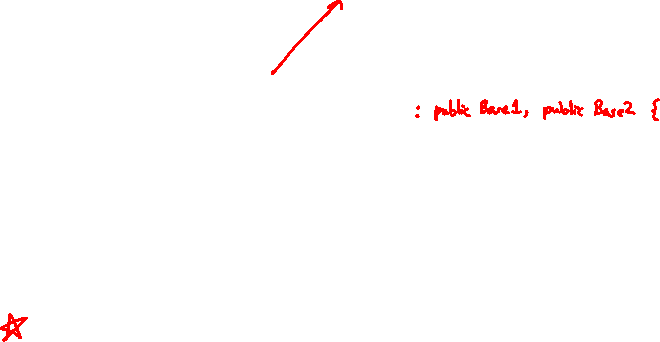 : public Base1, public Base2 {